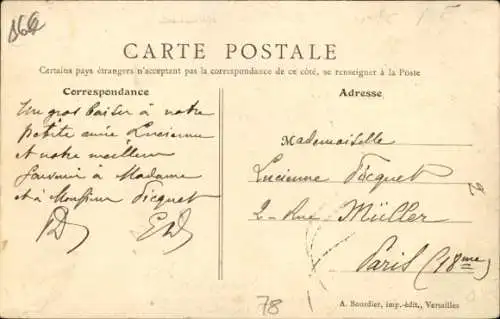 CARTE POSTALE
Certains pays étrangers n'acceptant pas la correspondance de ce côté, se renseigner à la Poste
Correspondance
Un gros baiser à notre
petite amie Lucienne
et notre meilleur
souvenir à Madame
et à Monsieur Picquet
Adresse
Mademoiselle
Lucienne Picquet
2 - Rue Müller
Paris (18me)
78
A. Bourdier, imp.-édit., Versailles